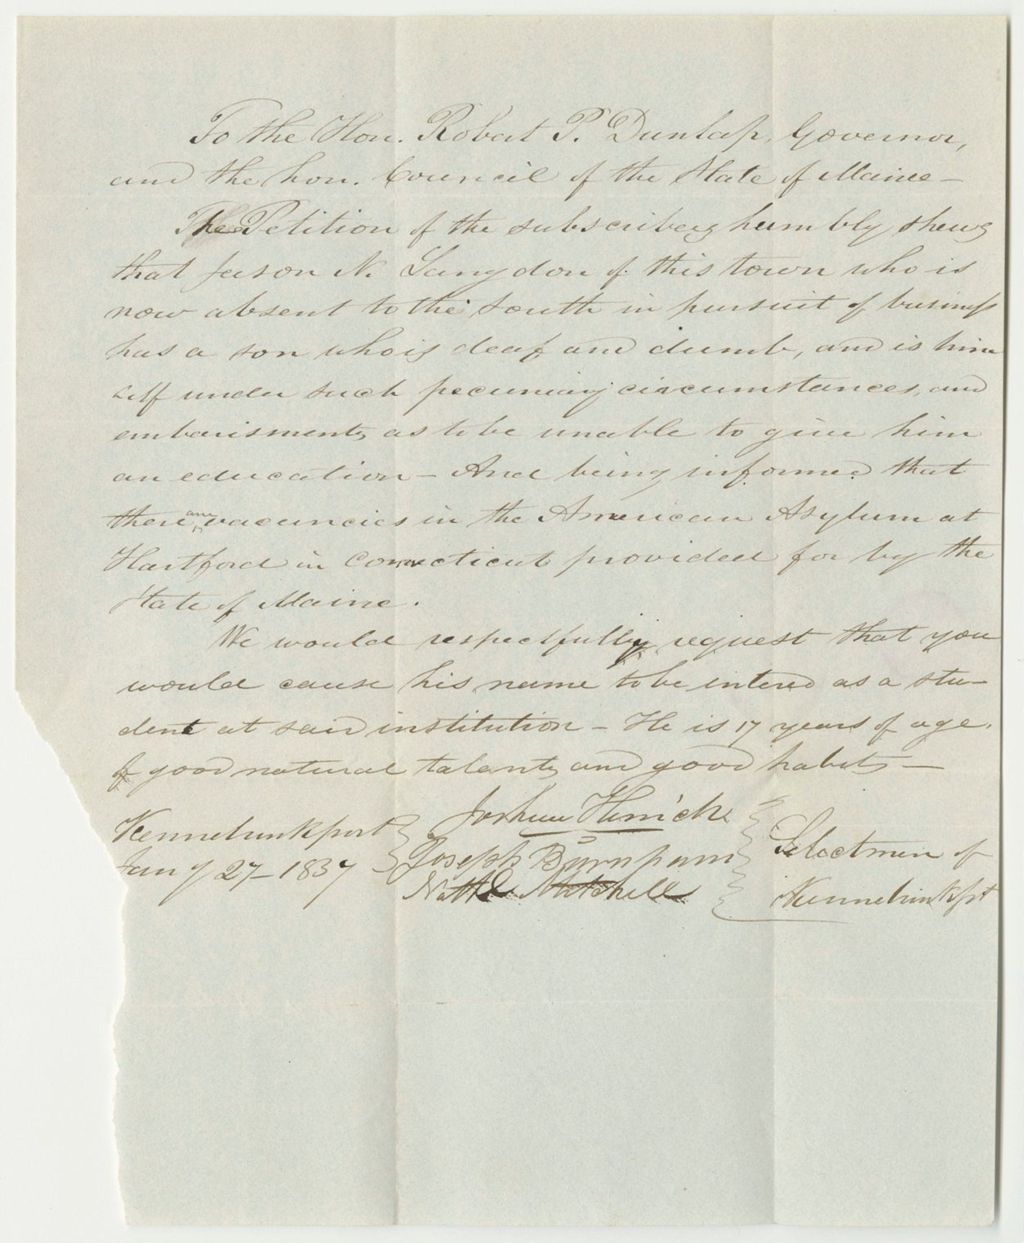 To the Hon. Robert P. Dunlap, Governor,
and the hon. Council of the State of Maine—
The Petition of the subscribers humbly shews
that Jason N. Langdon of this town who is
now absent to the South in pursuit of business
has a son who is deaf and dumb, and is him
self under such pecuniary circumstances, and
embarisments as to be unable to give him
an education — And being informed that
there are vacuncies in the American Asylum at
Hartford in Connecticut provided for by the
State of Maine.
We would respectfully request that you
would cause his name to be intered as a stu–
dent at said institution — He is 17 years of age.
of good natural talents and good habits —
Kennebunkport
Jany 27– 1837
Joshua Herrick
Joseph Burnham
Nathl Mitchell
Selectmen of
Kennebunkpt